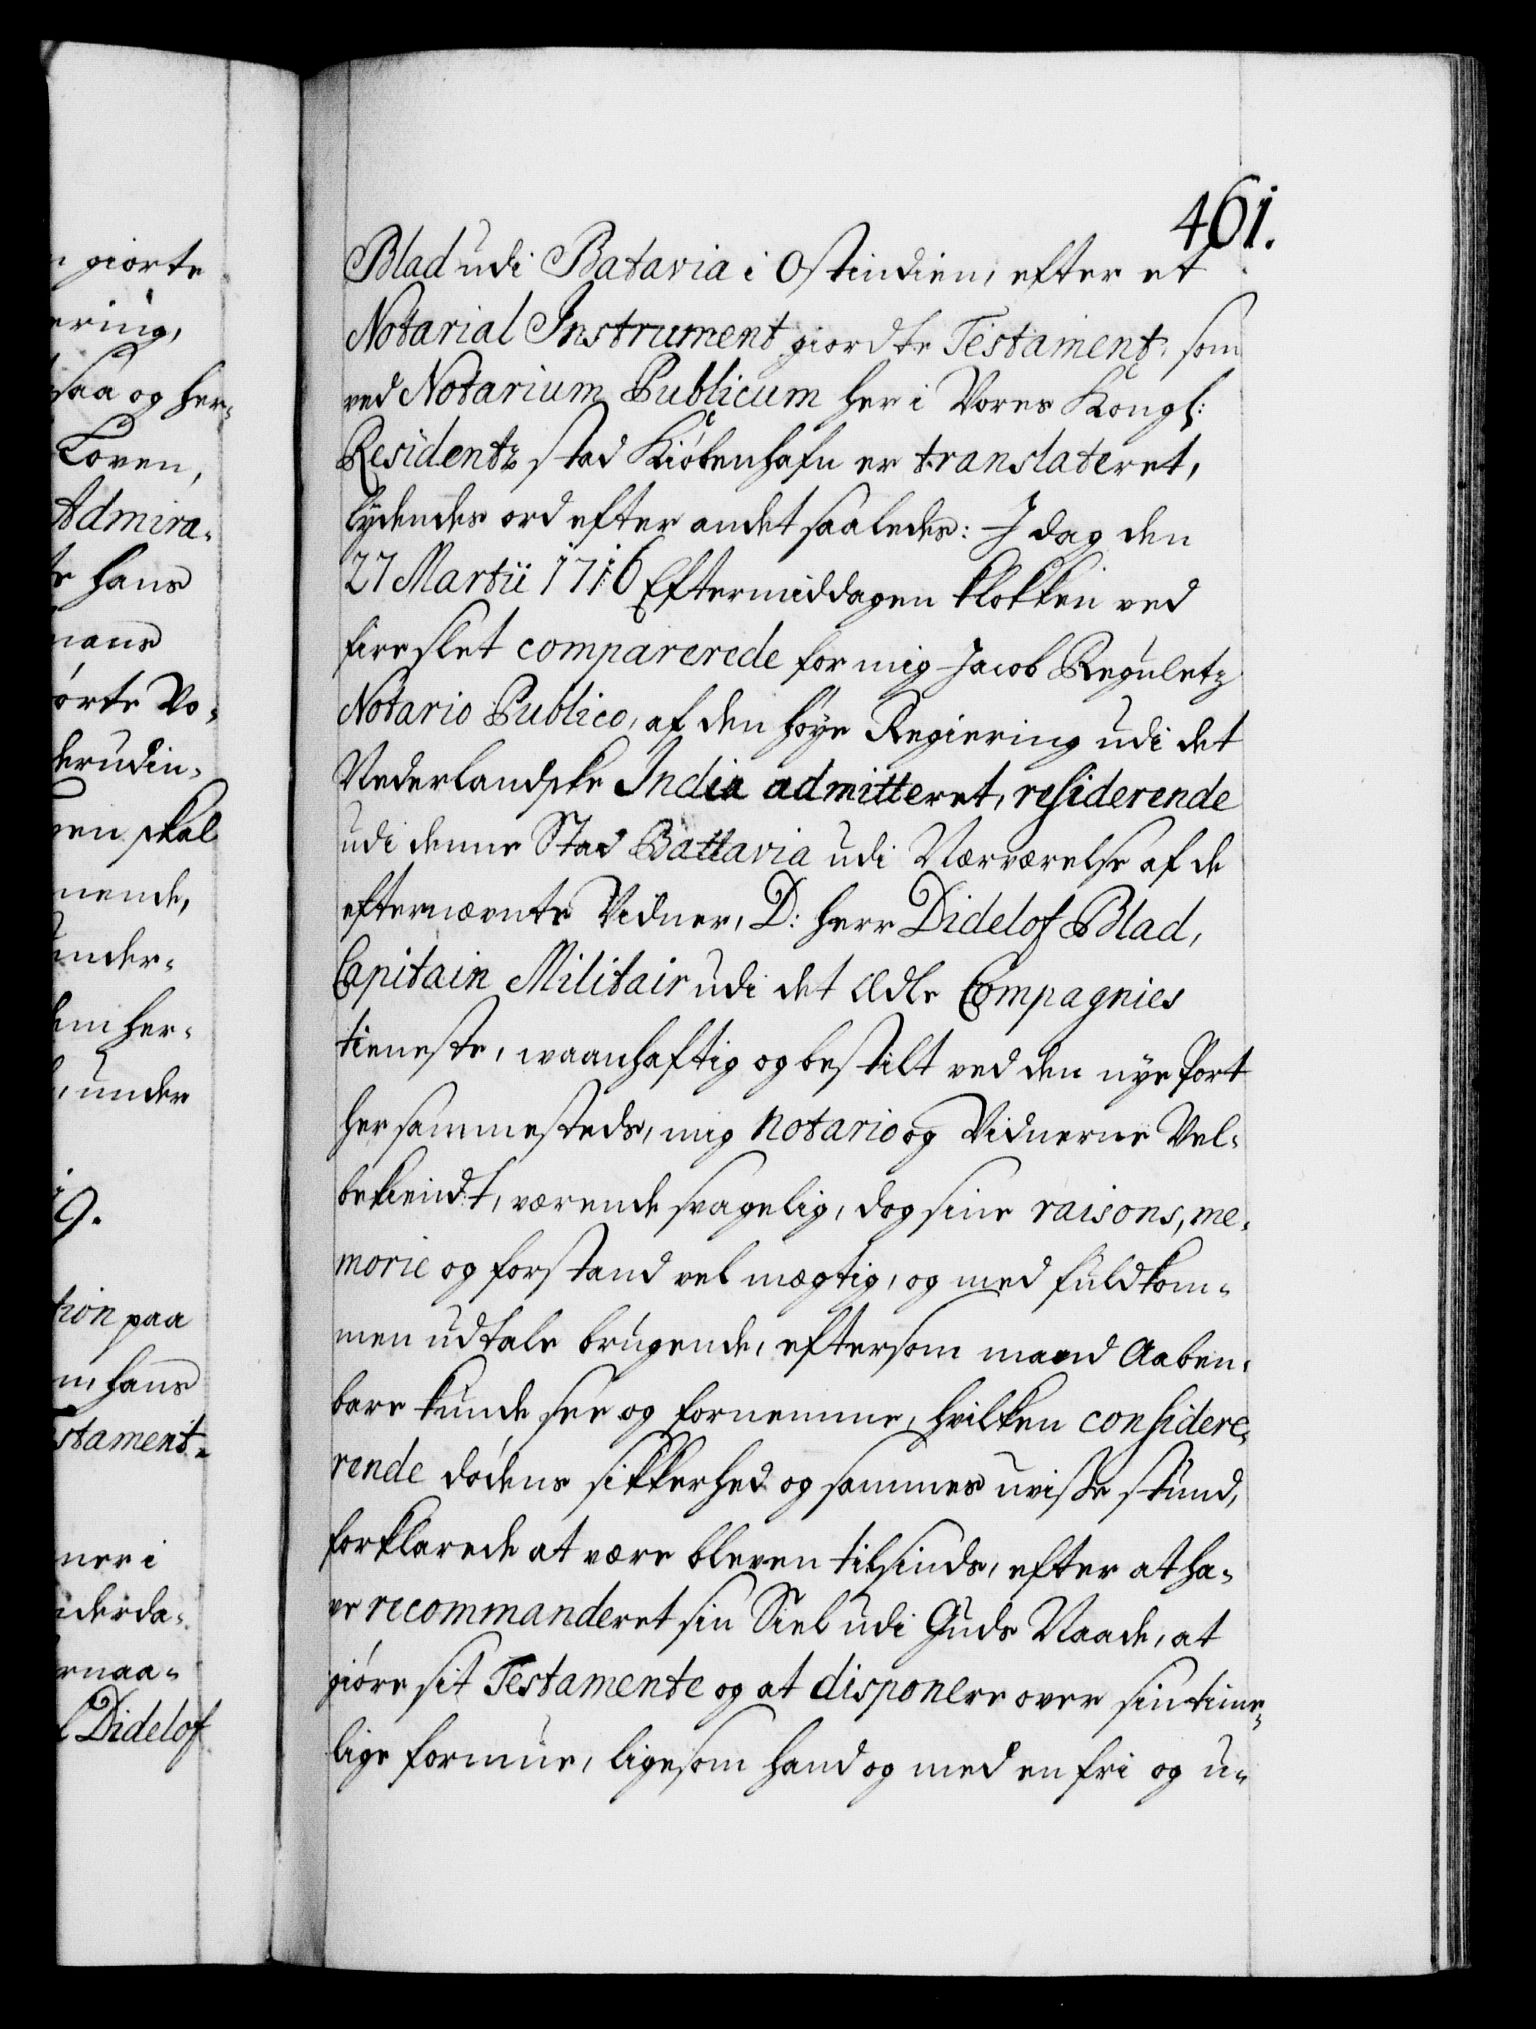 461.
Blad udi Batavia i Ostindien, efter et
Notarial Instrument giordte Testament, som
ved Notarium Publicum her i Vores Kongl:
Residentz stad Kiöbenhafn er translateret,
lydendes ord efter andet saaledes: I dag den
27 Martii 1716 Eftermiddagen klokken ved
fire slet comparerede for mig Jacob Reguletz
Notario Publico, af den höye Regiering udi det
Nederlandske India admitteret, residerende
udi denne Stad Battavia udi Nærværelse af de
efternævnte Vidner, D: Herr Didelof Blad,
Capitain Militair udi det Ædle Compagnies
tieneste, waanhaftig og bestilt ved den nye Port
hersammesteds, mig Notario og Vidnerne Vel-
bekiendt, værende svagelig, dog sine raisons, me-
morie og forstand vel mægtig, og med fuldkom-
men udtale brugende, eftersom mand Aaben-
bare kunde see og fornemme, hvilken considere-
rende dödens sikkerhed og sammes uvisse stund,
forklarede at være bleven tilsinds, efter at ha-
ve recommanderet sin Siel udi Guds Naade, at
giöre sit Testamente og at disponere over sin time-
lige formue, ligesom hand og med en fri og u-
giorte
ering,
saa og her-
Loven,
Admira-
hans
orte Vo-
derudin-
skal
nende,
under-
her-
under
19.
tion paa
hans
stament-
ner i
nderda-
rnaa-
Didelof